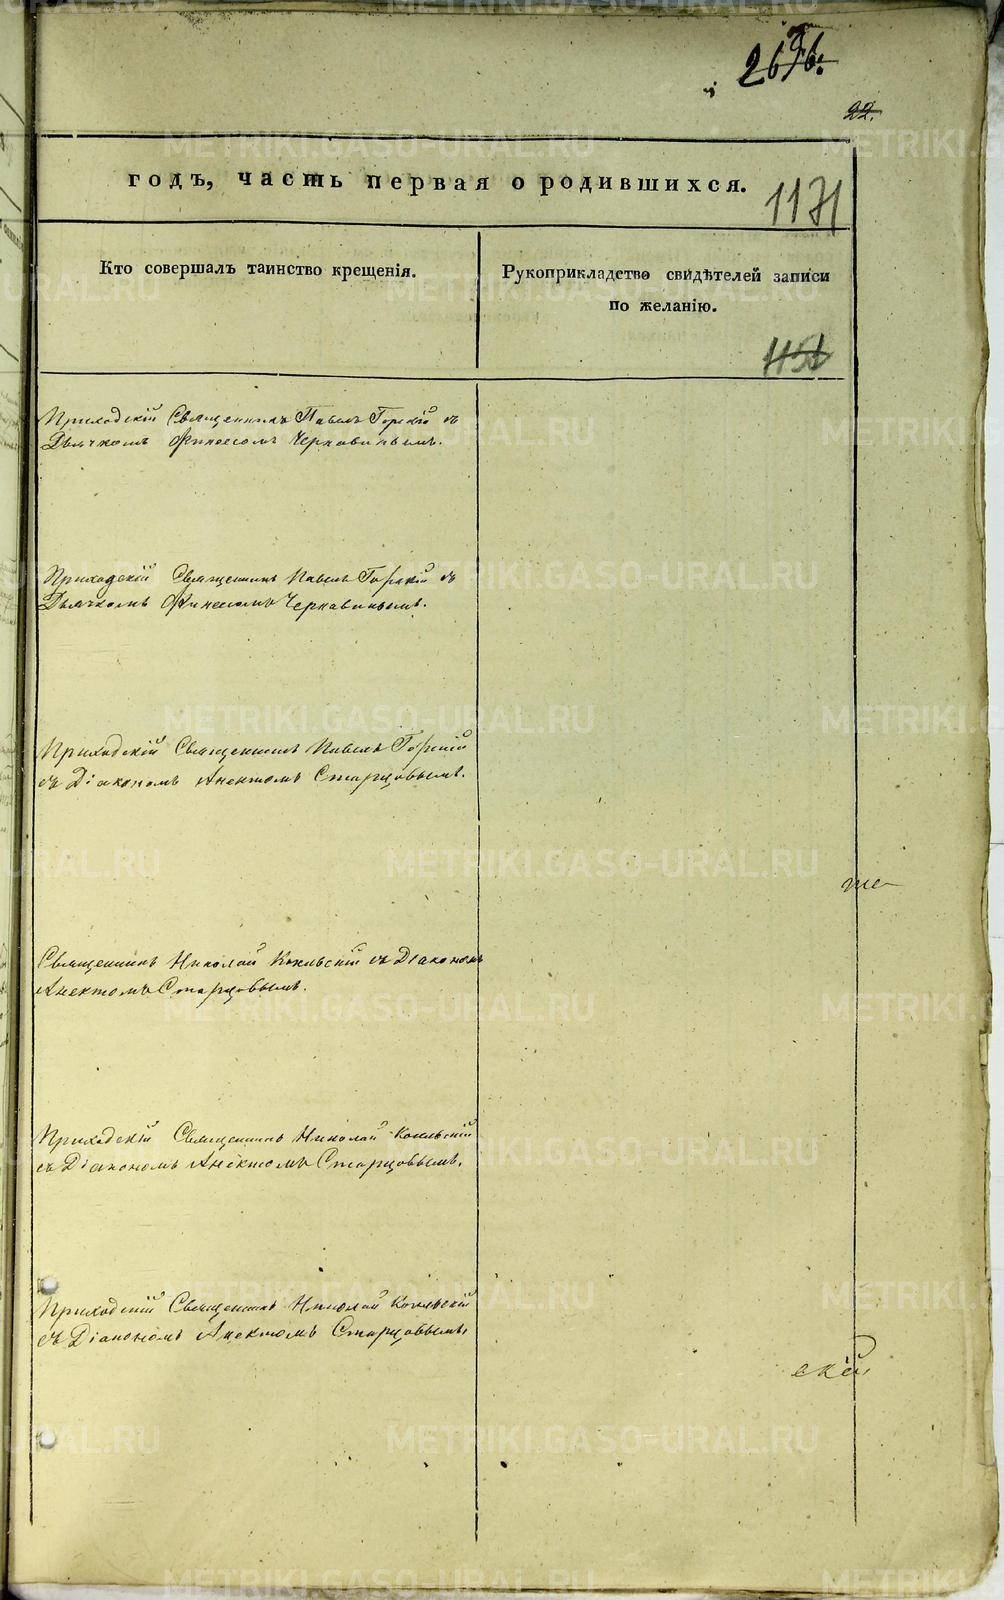 22.
годъ, часть первая о родившихся.
1171
Кто совершалъ таинство крещенія.
Рукоприкладство свидѣтелей записи
по желанію.
Приходскій Священникъ Павелъ Горскій съ
Дьячкомъ Финеесомъ Черкавинымъ.
Приходскій Священникъ Павелъ Горскій съ
Дьячкомъ Финеесомъ Черкавинымъ.
Приходскій Священникъ Павелъ Горскій
съ Діакономъ Анектомъ Старцовымъ.
Священникъ Николай съ Діакономъ
Анектомъ Старцовымъ.
Приходскій Священникъ Николай
съ Діакономъ Анектомъ Старцовымъ.
Приходскій Священникъ Николай
съ Діакономъ Анектомъ Старцовымъ.
ской
METRIKI.GASO-URAL.RU